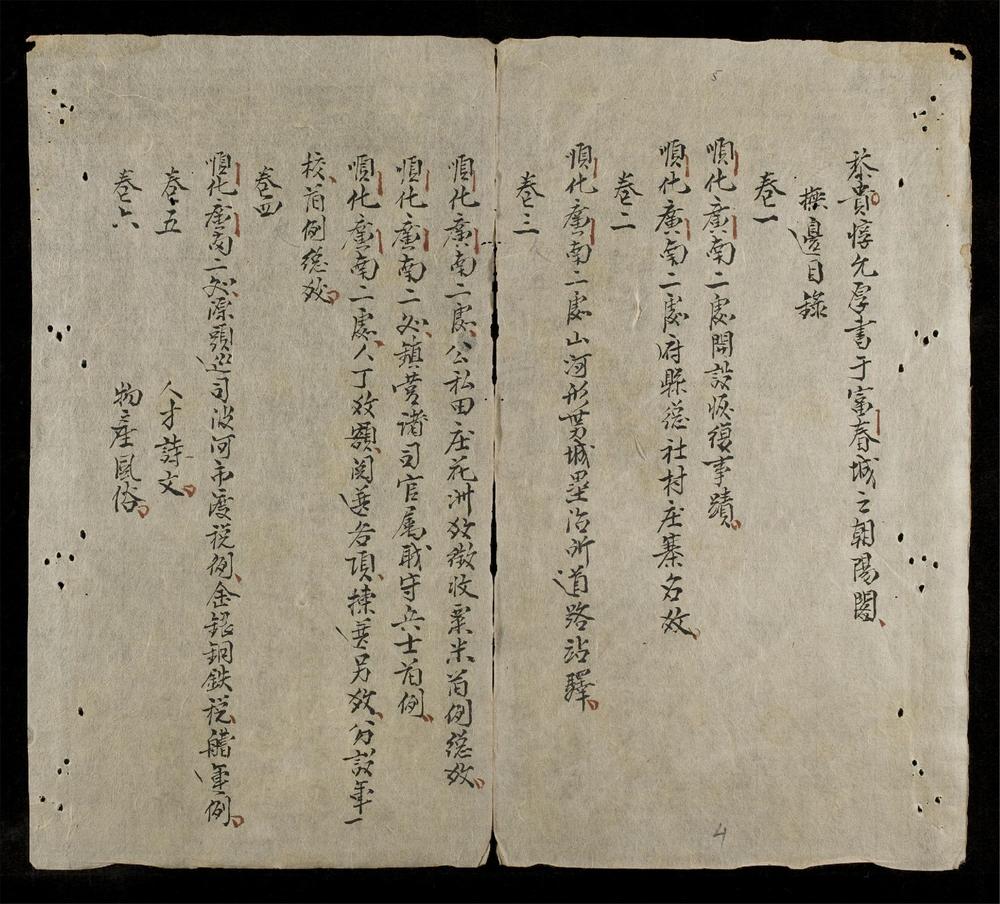 黎貴惇允厚書于富春城之朝陽閣
撫邊目錄
巻一
順化廣南二處開設恢復事蹟
順化廣南二處府縣總社村庄寨名效
巻二
順化廣南二處山河形势城壘治所道路站驛
巻三
順化廣南二處公私田庄花洲效徵收粟米前例總效
順化廣南二处鎮营諸司官属职守兵士前例
順化廣南二處人丁效額閱選各項揀選另效分設年一
核前例總效
巻四
順化廣南二处源頭巡司波河市度税例金銀銅鉄税艚運例
巻五 人才詩文
巻六 物產風俗
5
4